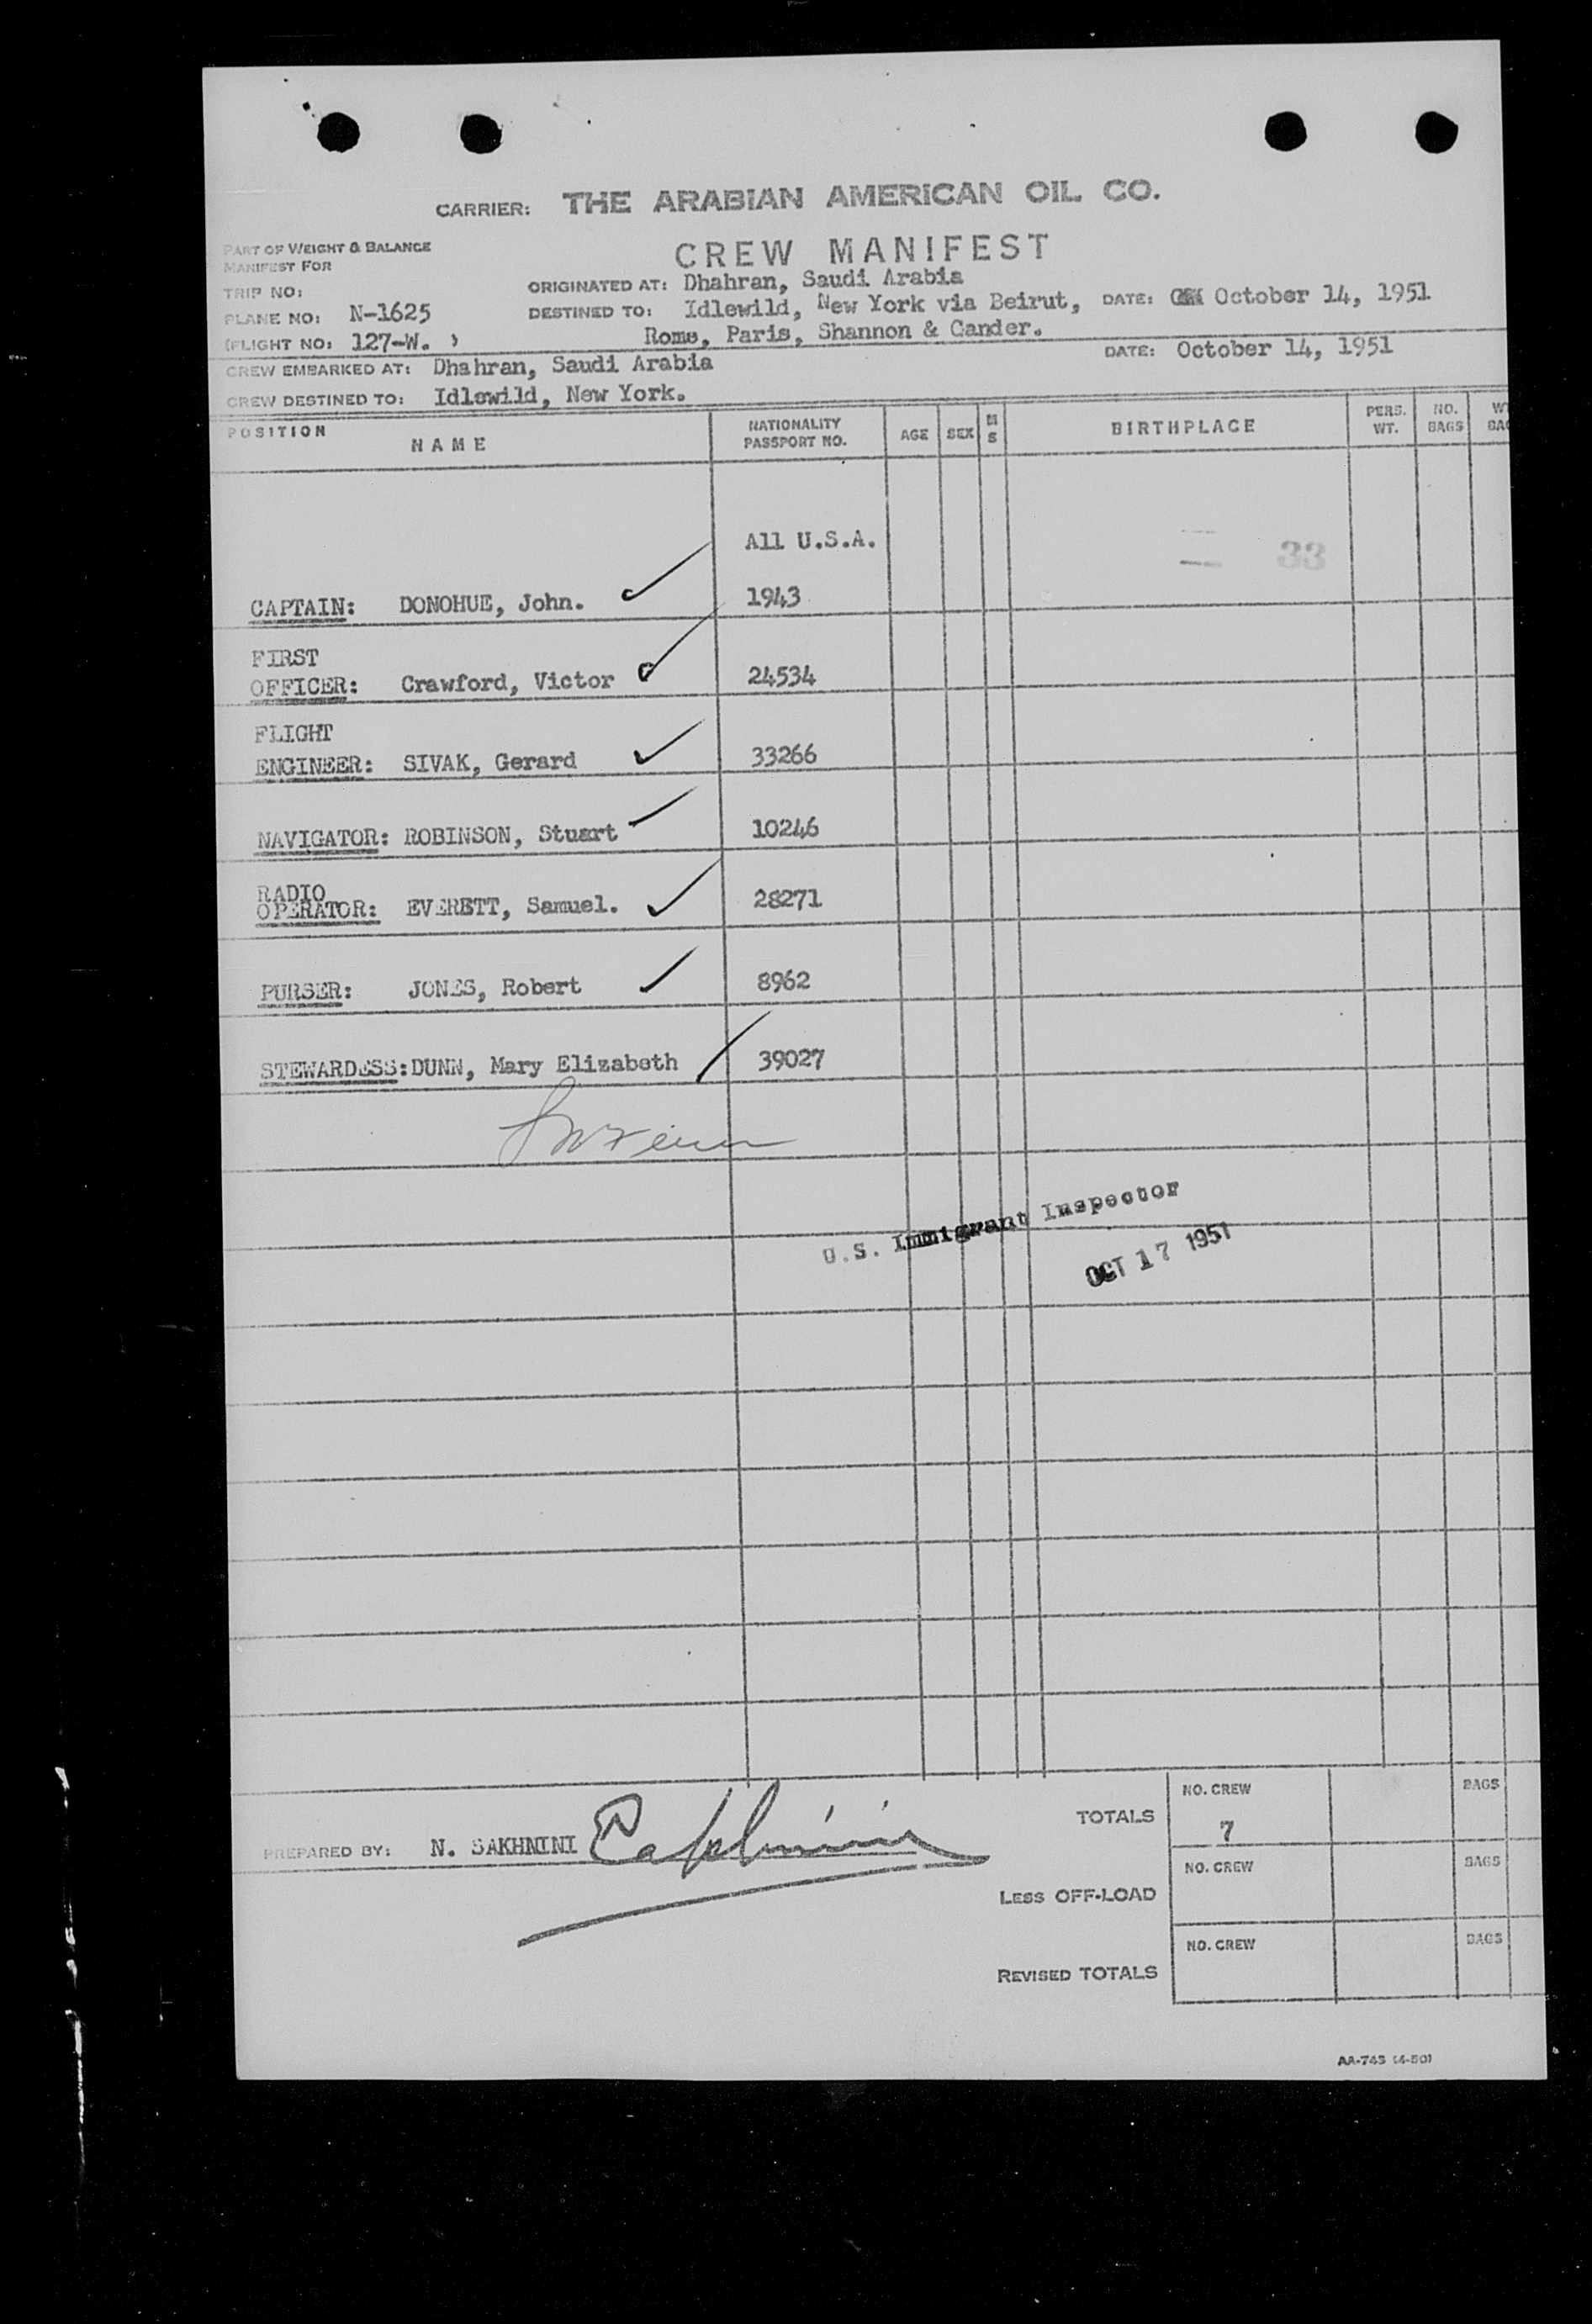 CARRIER: THE ARABIAN AMERICAN OIL CO.
PART OF WEIGHT & BALANCE
MANIFEST FOR
CREW MANIFEST
TRIP NO:
ORIGINATED AT: Dhahran, Saudi Arabia
PLANE NO: N-1625
DESTINED TO: Idlewild, New York via Beirut, DATE: October 14, 1951
(FLIGHT NO: 127-W. )
Rome, Paris, Shannon & Gander.
CREW EMBARKED AT: Dhahran, Saudi Arabia DATE: October 14, 1951
CREW DESTINED TO: Idlewild, New York.
POSITION NAME NATIONALITY PASSPORT NO. AGE SEX M S BIRTHPLACE PERS. WT. NO. BAGS
All U.S.A.
33
CAPTAIN: DONOHUE, John. 1943
FIRST
OFFICER: Crawford, Victor 24534
FLIGHT
ENGINEER: SIVAK, Gerard 33266
NAVIGATOR: ROBINSON, Stuart 10246
RADIO
OPERATOR: EVERETT, Samuel. 28271
PURSER: JONES, Robert 8962
STEWARDESS: DUNN, Mary Elizabeth 39027
U.S. Immigrant Inspector
OCT 17 1951
TOTALS NO. CREW 7 BAGS
PREPARED BY: N. SAKHNINI Sakhnini
LESS OFF-LOAD NO. CREW BAGS
REVISED TOTALS NO. CREW BAGS
AA-743 (4-50)